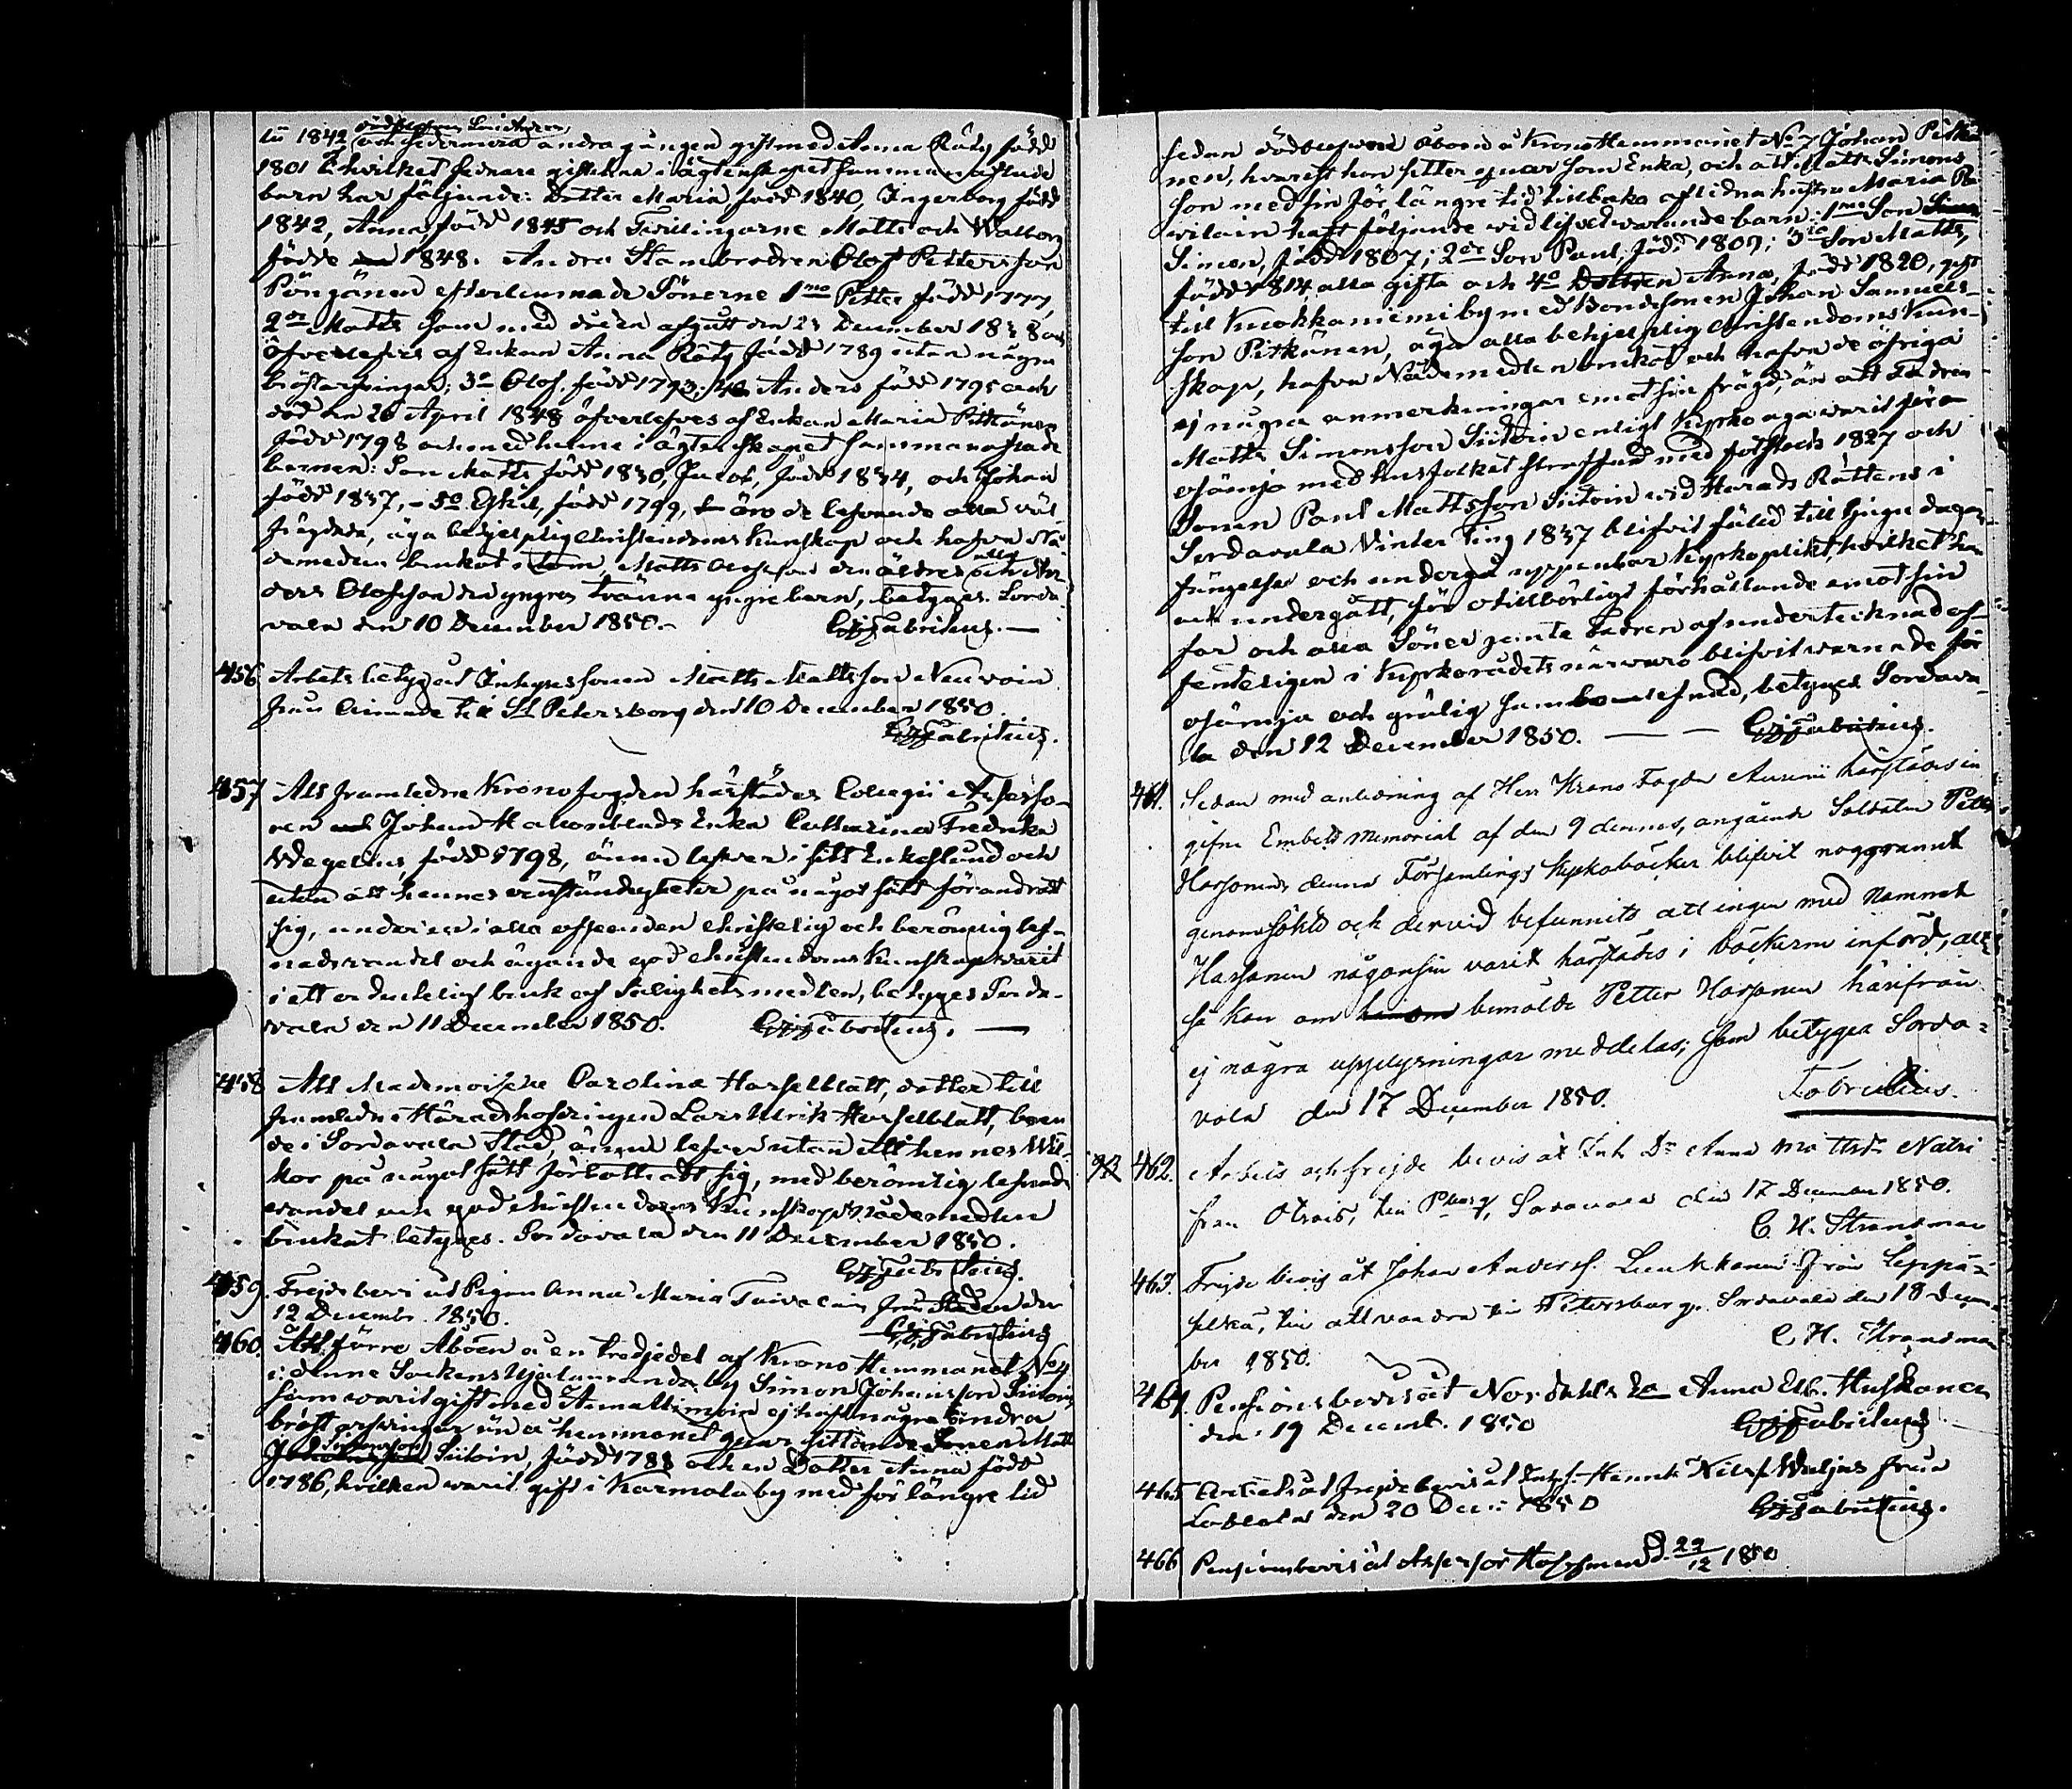 dödblefven Son Anders,
1842 och sedermera andra gången gift med Anna Räty född
1801 i hvilket sednare giftehna i ägtenskapet sammanaflade
barn har följande: Dotter Maria född 1840, Ingerborg född
1842, Anna född 1845 och Tvillingarne Matts och Walborg
födde 1848. Andra Stambrodren Olof Pettersson
Pöngänen efterlemnade Sönerne 1mo Petter född 1777,
2o Matts som med döden afgått den 23 December 1838 och
öfverlefves af Enkan Anna Räty född 1789 utan några
bröstarfvingar; 3o Olof, född 1793; 4o Anders född 1795 och
död den 26 April 1848 öfverlefves af Enkan Maria Pitkänen
född 1798 och med henne i ägtenskapet sammanaflade
barnen: Son Matts född 1830, Jacob, född 1834, och Johan
född 1837, - 5o Eskil, född 1799, äro de lefvande alla väl
frägdade, äga behjelplig Christendoms Kunskap och hafva Nå-
demedlen brukat Matts Olofsson den äldres och An-
ders Olofsson den yngres tränne yngre barn, betygas. Sorda-
vala den 10 December 1850.- Fabritius. —
456 Arbets betyg åt Inhyses sonen Matts Mattsson Neuvoin
från till St Petersborg den 10 December 1850.
Fabritius.
457 Att framledne Kronofogden härstädes Collegii Assesso-
ren Johan Enka Catharina Fredrika
Wegelius, född 1798, ännu lefver i sitt Enkestånd och
utan att hennes omständigheter på något sätt förändrat
sig, under en i alla afseenden christelig och berömlig lef-
nadsvandel och ägande god Christendoms Kunskap varit
i ett anduktigt bruk af Salighetsmedlen, betygas Sorda-
vala den 11 December 1850. Fabritius. —
458 Att Mademoiselle Carolina Hasselblatt, dotter till
framledne Häradshöfdingen Lars Ulrik Hasselblatt, boen-
de i Sordavala Stad, ännu lefver utan att hennes Wil-
kor på något sätt förbättrat sig, med berömlig lefnads
vandel och god Christendoms Kunskap nådemedlen
brukat betygas. Sordavala den 11 December 1850.
Fabritius.
459. Frejdebevis åt Pigan Anna Maria Taivalain från Staden den
12 Decembr. 1850. Fabritius
460. Att förre Åboen å en tredjedel af Krono Hemmanet No 4
i denne Sockens by Simon Johansson Siitoin
som varit gift med ej haft några andra
bröstarfvingar än å hemmanet quar sittande Sonen Matts
Simonsson Siitoin, född 1788 och en Dotter Anna född
1786, hvilken varit gift i Karmala by med för längre tid
sedan dödblefven åboen å Krono Hemmanet No 7 Johan Pitkä-
nen, hvarest hon sitter quar som Enka, och att Matts Simons-
son med sin för längre tid tillbaka aflidna hustru Maria
haft följande vid lifvet warande barn: 1mo Son
Simon, född 1807; 2o Son Paul, född 1809; 3o Son Matts,
född 1814, alla gifta och 4o Dottren Anna, född 1820, gift
till Kuokkaniemi by med Bondesonen Johan Samuels-
son Pitkänen, äga alla behjelplig Christendoms Kun-
skap, hafva Nådemedlen brukat och hafva de öfriga
ej några anmerkningar emot sin frägd, än att Fadren
Matts Simonsson Siitoin enligt Kyrko aga varit för o-
osämja med husfolket straffad med fotstock 1827 och
Sonen Paul Mattsson Siitoin vid Härads Rättens i
Sordavala Vinter Ting 1837 blifvit fälld till tjugu dagars
fängelse och undergå uppenbar Kyrkoplikt, hvilket han
ock undergått, för otillbörligt förhållande emot sin
far och alla Söner jemte Fadren af undertecknad of-
fenteligen i Kyrkorådets närvaro blifvit varnade för
osämja och grälig sammanlefnad, betygas Sordava-
la den 12 December 1850. — — Fabritius.
461. Sedan med anledning af Herr Krono Fogden härstädes in
gifne Embets Memorial af den 9 dennes, angående Soldaten Petter
Harjonens denna Församlings Kyrkoböcker blifvit noggrannt
genomsökte och dervid befunnits att ingen med namnet
Harjonen någonsin varit härstädes i böckerne införd, allt
så kan om bemälde Petter Harjonen härifrån
ej några upplysningar meddelas; som betygas Sorda-
vala den 17 December 1850. Fabritius.
462. Arbets och frejde bevis åt Inh. Dr Anna Mattsdr Natri
från Otrois, till Pburg, Sordavala den 17 December 1850.
C. H. Strandman
463. Frejde bevis åt Johan Anderss. Luukkanen från Leppä-
selkä, till att vandra till Petersburg. Sordavala den 18 Decem-
ber 1850. C H. Strandman
464. Pensionsbevis åt Nordahls Ea Anna Elis. Huskonen
den 19 Decemb. 1850 Fabritius
465 Arbets och frejdebevis åt Inhyses Henrik Nilss. Weljas från
den 20 Dec. 1850 Fabritius.
466 Pensionsbevis åt Assessor Hoffman d. 22/12 1850